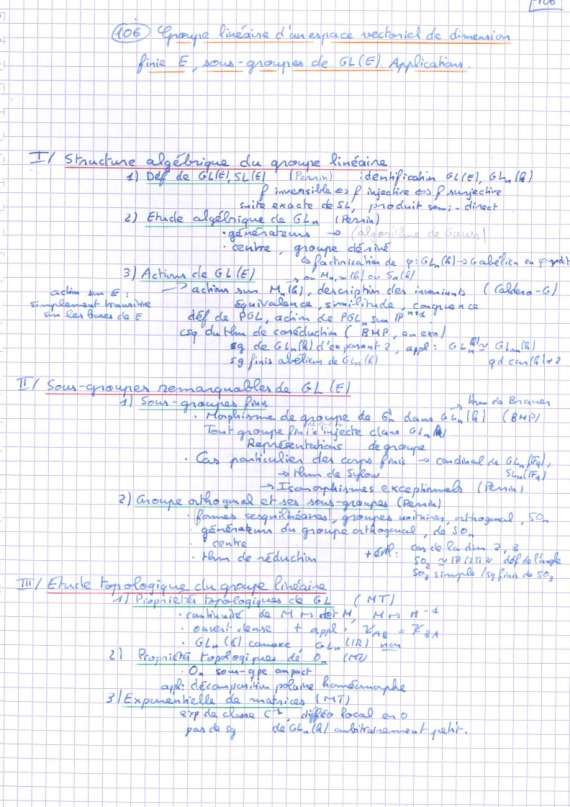 106
(106) Groupe linéaire d'un espace vectoriel de dimension
finie E, sous-groupes de GL(E) Applications.
I/ Structure algébrique du groupe linéaire
1) Déf de GL(E), SL(E) (Perrin) : identification GL(E), GLn(k)
f inversible <=> f injective <=> f surjective
suite exacte de SL, produit semi-direct
2) Etude algébrique de GLn (Perrin)
· générateurs → (algorithme de Gauss)
· centre, groupe dérivé
↳ factorisation de φ: GLn(k) → G abélien en
3) Actions de GL(E)
→ action sur Mn(k), description des invariants (Caldero-G)
action sur E :
simplement transitive
sur les bases de E
équivalence, similitude, congruence
déf de PGL, action de PGLn sur
csq du thm de coréduction (BMP, en exo)
sg de GLn(k) d'exposant 2, appl: GLn(k) ≃ GLm(k)
sg finis abéliens de GLn(k) qd car(k)≠2
II/ Sous-groupes remarquables de GL(E)
1) Sous-groupes finis
→ thm de Brauer
· Morphisme de groupe de Sn dans GLn(k) (BMP)
Tout groupe fini s'injecte dans GLn(k)
Représentations de groupe
· Cas particulier des corps finis → cardinal de GLn(Fq), SLn(Fq)
→ thm de Sylow
→ Isomorphismes exceptionnels (Perrin)
2) Groupe orthogonal et ses sous-groupes (Perrin)
· formes sesquilinéaires, groupes unitaires, orthogonal, SOn
· générateurs du groupe orthogonal, de SOn
· centre
· thm de réduction
cas de la dim 2, 3
SO2 ≃ IR/2πZ déf de l'angle
SO3 simple / sg finis de SO3
III/ Etude topologique du groupe linéaire
1) Propriétés topologiques de GL (MT)
· continuité de M ↦ det M, M ↦ M⁻¹
· ouvert dense + appl: χAB = χBA
· GLn(C) connexe, GLn(IR) non
2) Propriétés topologiques de On (MT)
· On sous-gpe compact
appl: décomposition polaire homéomorphe
3) Exponentielle de matrices (MT)
exp de classe C¹, difféo local en 0
pas de sg de GLn(k) arbitrairement petit.